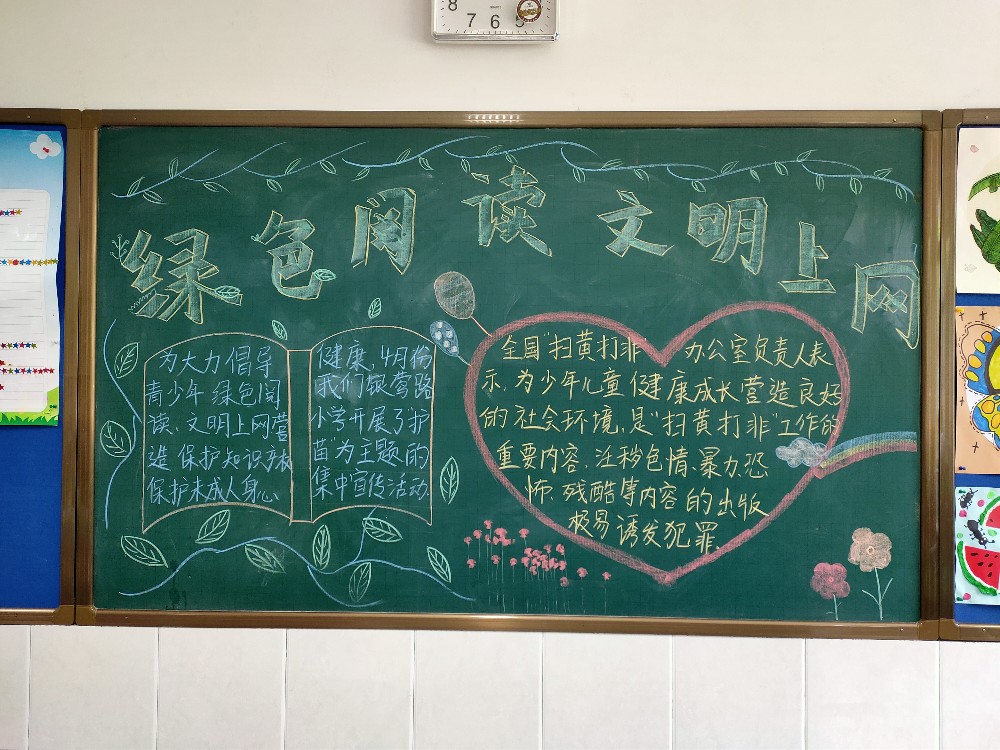 8 7 6 5
绿色阅读 文明上网
为大力倡导
青少年绿色阅
读、文明上网营
造保护知识产权
保护未成人身心
健康,4月份
我们银莺路
小学开展了"护
苗"为主题的
集中宣传活动.
全国"扫黄打非" 办公室负责人表
示,为少年儿童健康成长营造良好
的社会环境,是"扫黄打非"工作的
重要内容.淫秽色情、暴力恐
怖.残酷等内容的出版
极易诱发犯罪.